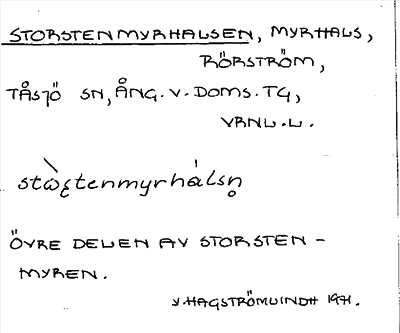 STORSTENMYRHALSEN, MYRHALS,
RÖRSTRÖM,
TÅSJÖ SN, ÅNG. V. DOMS. TG,
VRNL. L.
stɷ̀ʂtenmyrhálsn̥
ÖVRE DELEN AV STORSTEN-
MYREN.
V. HAGSTRÖM LINDH 1971.